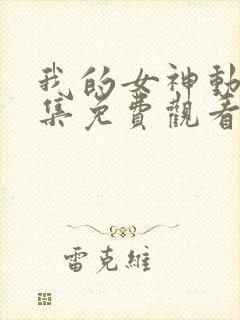 我的女神動
集免費觀看
雷克維